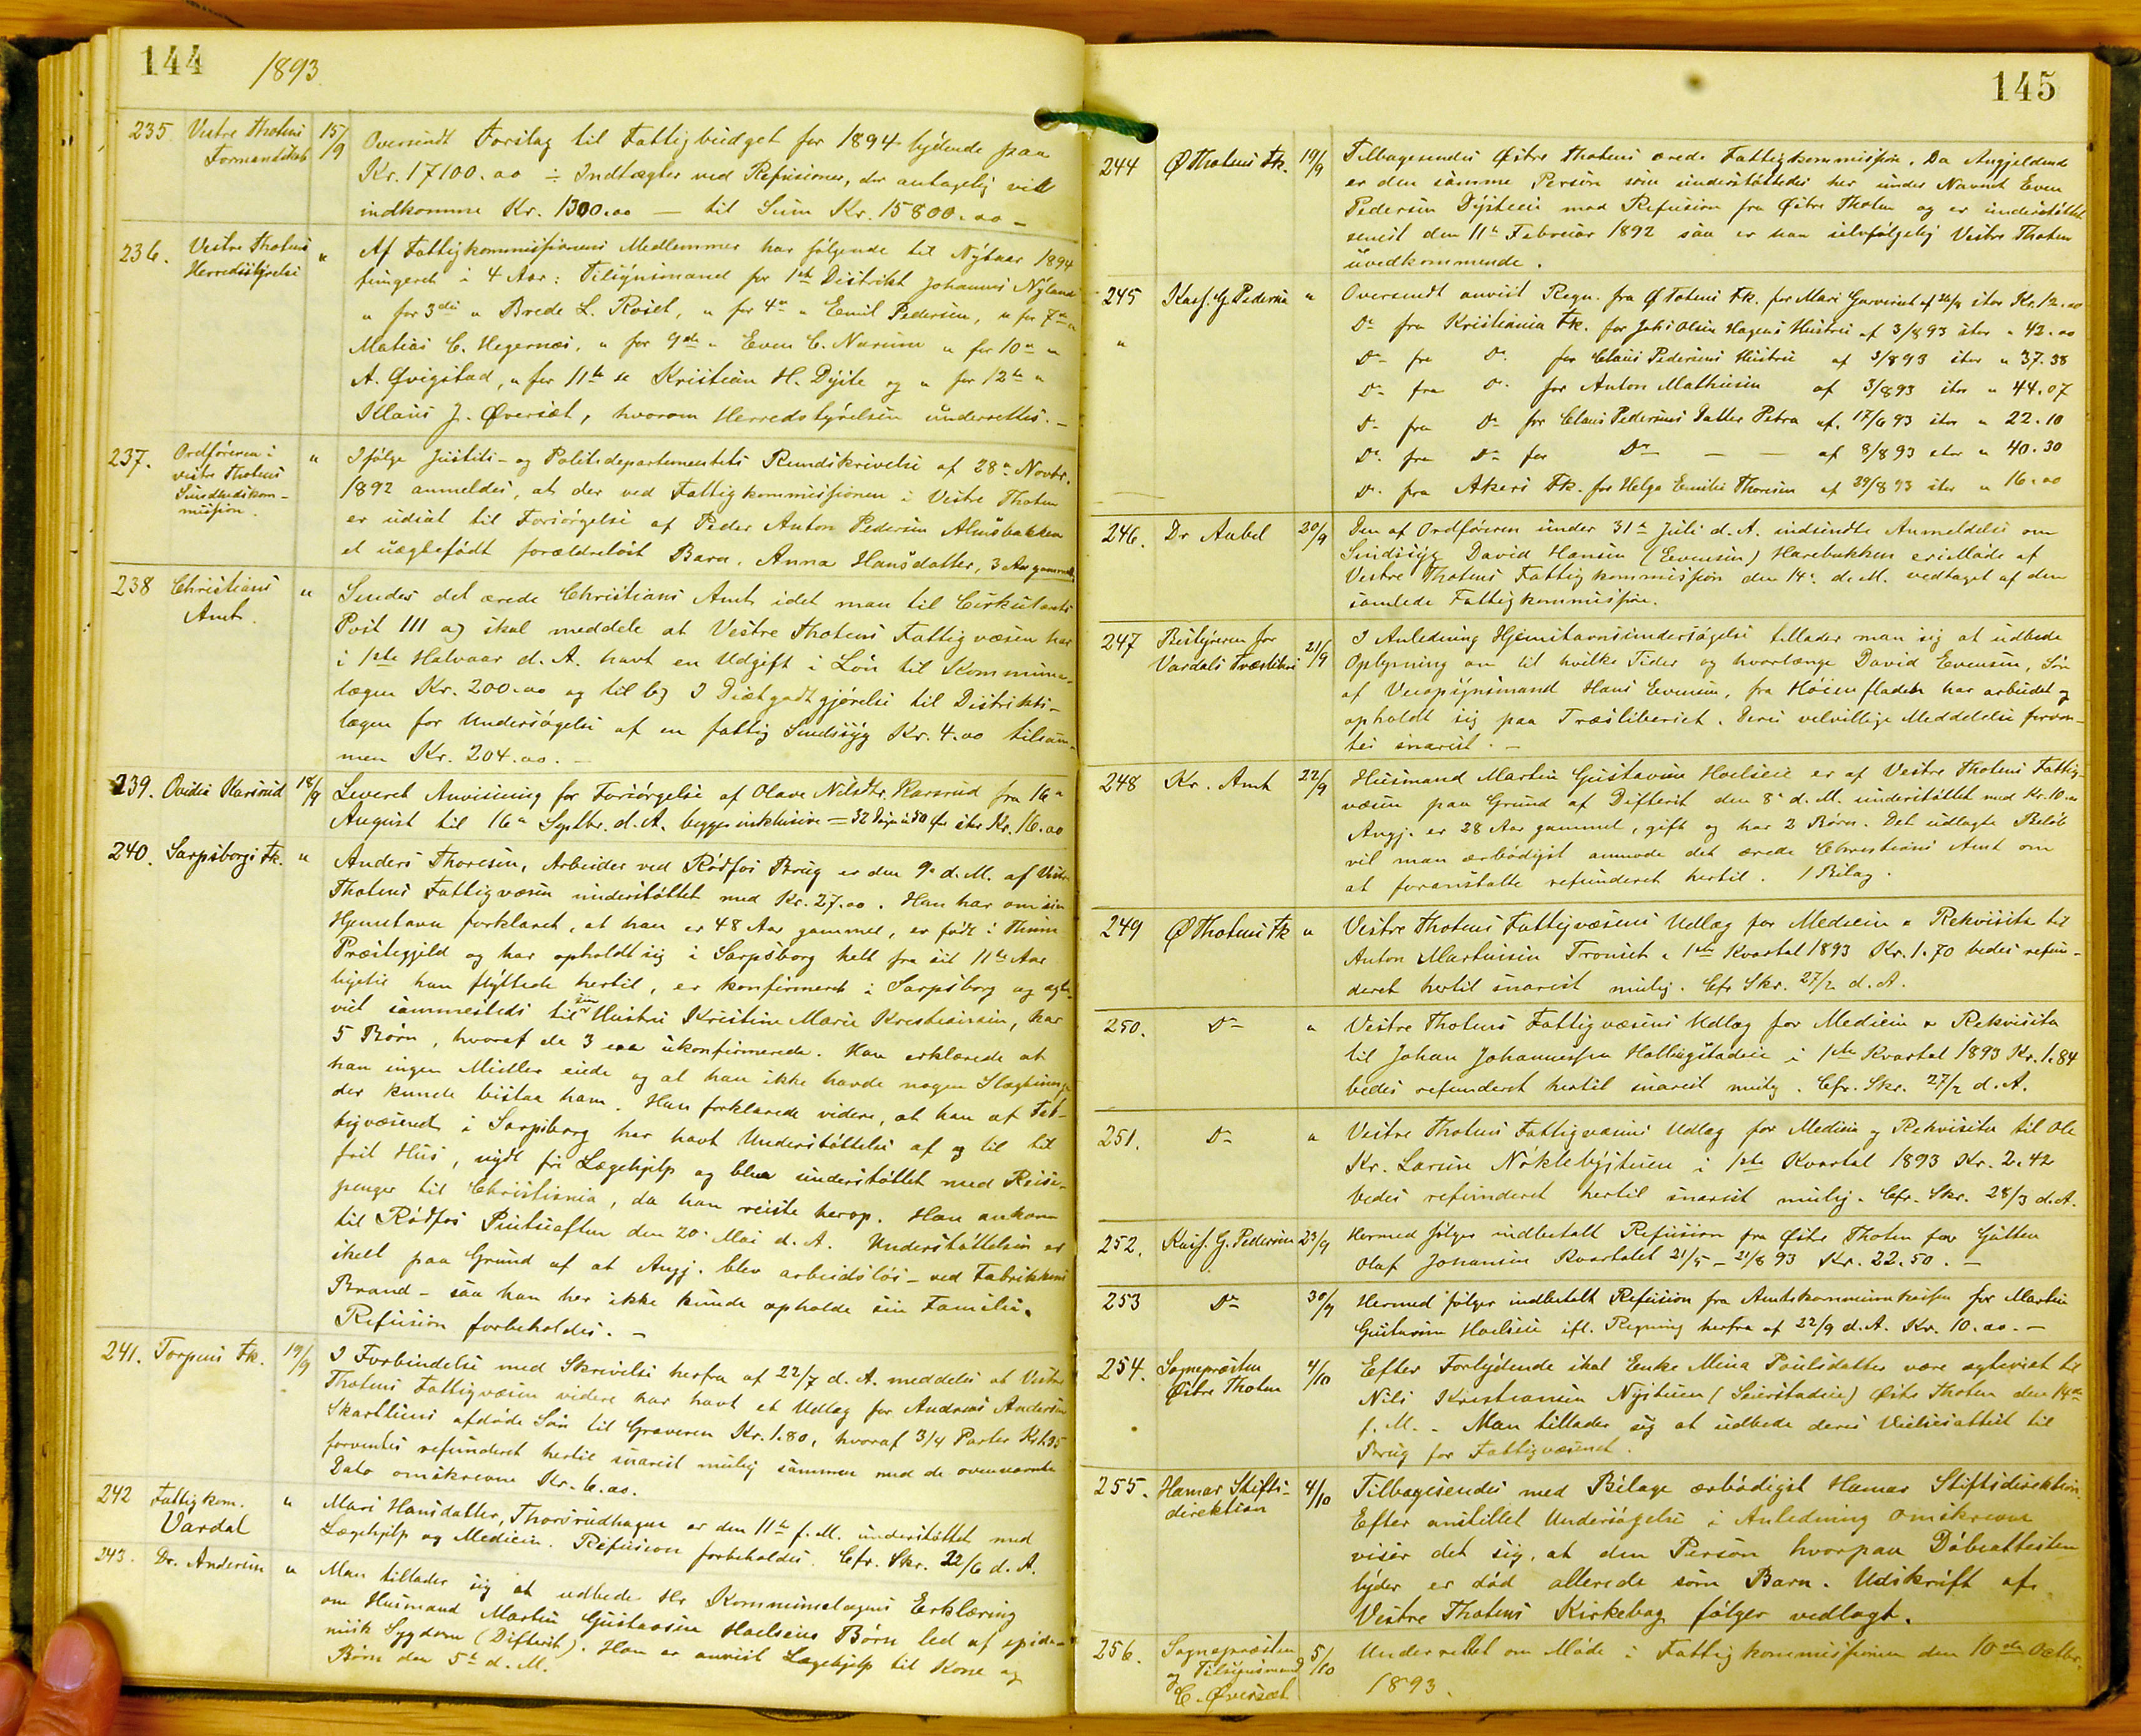 144 1893
235 Vestre Thotens 15/9 Oversendt Forslag til Fattigbudget for 1894 lydende paa
Formandskab Kr. 17100.00 ÷ Indtægter ved Refusioner, der antagelig vil
indkomme Kr. 1300.00 — til Sum Kr. 15800.00 —
236. Vestre Thotens " Af Fattigkommissionens Medlemmer har følgende til Nytaar 1894
Herredsstyrelse fungeret i 4 Aar: Tilsynsmand for 1ste Distrikt Johannes Nyland
" for 3die " Brede L. Roset, " for 4de " Emil Pedersen, " for 7de "
Matias C. Hegernæs, " for 9de " Even C. Narum " for 10de "
A. Øvigstad, " for 11te " Kristian H. Dyste og " for 12te "
Klaus J. Øversæt, hvorom Herredsstyrelsen underrettes. —
237. Ordføreren i " Ifølge Justits- og Politidepartementets Rundskrivelse af 28de Novbr.
vestre Thotens 1892 anmeldes, at der ved Fattigkommissionen i Vestre Thoten
Sundhedskom- er udsat til Forsørgelse af Peder Anton Pedersen Almsbakken
mission. et uægtefødt forældreløst Barn, Anna Hansdatter, 3 Aar gammelt.
238 Christians " Sendes det ærede Christians Amt idet man til Cirkulærets
Amt. Post III a) skal meddele at Vestre Thotens Fattigvæsen har
i 1ste Halvaar d. A. havt en Udgift i Løn til Kommune-
lægen Kr. 200.00 og til b) I Diætgodtgjørelse til Distrikts-
lægen for Undersøgelse af en fattig Sindssyg Kr. 4.00 tilsam-
men Kr. 204.00. —
239. Ovidia Karsrud 18/9 Leveret Anvisning for Forsørgelse af Olava Nilsdtr. Karsrud fra 16de
August til 16de Septbr. d. A. begge inklusive = 32 Dage à 50 Øre stor Kr. 16.00
240. Sarpsborgs Fk. " Anders Thoresen, Arbeider ved Rødfos Brug er den 9de d. M. af Vestre
Thotens Fattigvæsen understøttet med Kr. 27.00. Han har om sin
Hjemstavn forklaret, at han er 48 Aar gammel, er født i Thuns
Præstegjeld og har opholdt sig i Sarpsborg helt fra sit 11te Aar
ligetil han flyttede hertil, er konfirmeret i Sarpsborg og ægte-
viet sammesteds til sin Hustru Kristine Marie Kristiansen, har
5 Børn, hvoraf de 3 ere ukonfirmerede. Han erklærede at
han ingen Midler eiede og at han ikke havde nogen Slægtninge
der kunde bistaa ham. Han forklarede videre, at han af Fat-
tigvæsenet i Sarpsborg har havt Understøttelse af og til til
frit Hus, nydt fri Lægehjelp og blev understøttet med Reise-
penger til Christiania, da han reiste herop. Han ankom
til Rødfos Pintseaften den 20. Mai d. A. Understøttelsen er
skeet paa Grund af at Angj. blev arbeidsløs — ved Fabrikkens
Brand — saa han her ikke kunde opholde sin Familie.
Refusion forbeholdes. —
241. Torpens Fk. 19/9 I Forbindelse med Skrivelse herfra af 22/7 d. A. meddeles at Vestre
Thotens Fattigvæsen videre har havt et Udlæg for Andreas Andersen
Skartliens afdøde Søn til Graveren Kr. 1.80, hvoraf 3/4 Parter Kr. 1.35
forventes refunderet hertil snarest mulig sammen med de ovennævnte
Dato omskrevne Kr. 6.00.
242 Fattigkom. " Mari Hansdatter, Thorsrudhagen er den 11te f. M. understøttet med
Vardal Lægehjelp og Medicin. Refusion forbeholdes. Cfr. Skr. 22/6 d. A.
243. Dr. Andersen " Man tillader sig at udbede Hr Kommunelægens Erklæring
om Husmand Martin Gustavsen Hoelseies Børn led af epide-
misk Sygdom (Difterit). Han er anvist Lægehjelp til Kone og
Børn den 5te d. M.
145
244 Ø Thotens Fk. 19/9 Tilbagesendes Østre Thotens ærede Fattigkommission. Da Angjeldende
er den samme Person som understøttedes her under Navnet Even
Pedersen Dysteeie mod Refusion fra Østre Thoten og er understøttet
senest den 11te Februar 1892 saa er han selvfølgelig Vestre Thoten
uvedkommende.
245 Kass. G. Pedersen " Oversendt anvist Regn. fra Ø Totens Fk. for Mari Garveriet af 26/8 stor Kr. 12.00
Do fra Kristiania Fk. for Johs Olsen Hagens Hustru af 3/8 93 stor " 42.00
" Do fra Do for Claus Pedersens Hustru af 3/8 93 stor " 37.38
Do fra Do for Anton Mathiesen af 3/8 93 stor " 44.07
Do fra Do for Claus Pedersens Datter Petra af 17/6 93 stor " 22.10
Do fra Do for Do — — af 8/8 93 stor " 40.30
Do fra Akers Fk. for Helga Emilie Thoresen af 29/8 93 stor " 16.00
246. Dr Aubel 20/9 Den af Ordføreren under 31te Juli d. A. indsendte Anmeldelse om
Sindssyg David Hansen (Evensen) Harebakken er i Møde af
Vestre Thotens Fattigkommission den 14de d. M. vedtaget af den
samlede Fattigkommission.
247 Bestyreren for 21/9 I Anledning Hjemstavnsundersøgelse tillader man sig at udbede
Vardals Træsliberi Oplysning om til hvilke Tider og hvorlænge David Evensen, Søn
af Veiopsynsmand Hans Evensen, fra Høienfladen har arbeidet og
opholdt sig paa Træsliberiet. Deres velvillige Meddelelse forven-
tes snarest. —
248 Kr. Amt 22/9 Husmand Martin Gustavsen Hoelseie er af Vestre Thotens Fattig-
væsen paa Grund af Difterit den 8de d. M. understøttet med Kr. 10.00
Angj. er 28 Aar gammel, gift og har 2 Børn. Det udlagte Beløb
vil man ærbødigst anmode det ærede Christians Amt om
at foranstalte refunderet hertil. 1 Bilag.
249 Ø Thotens Fk " Vestre Thotens Fattigvæsens Udlæg for Medicin & Rekvisita til
Anton Martinsen Tronset i 1ste Kvartal 1893 Kr. 1.70 bedes refun-
deret hertil snarest mulig. Cfr Skr. 27/2 d. A.
250. Do " Vestre Thotens Fattigvæsens Udlæg for Medicin & Rekvisita
til Johan Johannessen Hallingstadeie i 1ste Kvartal 1893 Kr. 1.84
bedes refunderet hertil snarest mulig. Cfr. Skr. 27/2 d. A.
251. Do " Vestre Thotens Fattigvæsens Udlæg for Medicin og Rekvisita til Ole
Kr. Larsen Nøklebystuen i 1ste Kvartal 1893 Kr. 2.42
bedes refunderet hertil snarest mulig. Cfr. Skr. 28/3 d. A.
252. Kass. G. Pedersen 23/9 Hermed følger indbetalt Refusion fra Østre Thoten for Gutten
Olaf Johansen Kvartalet 21/5 – 21/8 93 Kr. 22.50. —
253 Do 30/9 Hermed følger indbetalt Refusion fra Amtskommunekassen for Martin
Gustavsen Hoelseie ifl. Regning herfra af 22/9 d. A. Kr. 10.00. —
254. Sognepræsten 4/10 Efter Forlydende skal Enke Mina Poulsdatter være ægteviet til
Østre Thoten Nils Kristiansen Nystuen (Seierstadeie) Østre Thoten den 14de
f. M. – Man tillader sig at udbede deres Vielsesattest til
Brug for Fattigvæsenet.
255. Hamar Stifts- 4/10 Tilbagesendes med Bilage ærbødigst Hamar Stiftsdirektion.
direktion Efter anstillet Undersøgelse i Anledning omskrevne
viser det sig, at den Person hvorpaa Døbeattesten
lyder er død allerede som Barn. Udskrift af
Vestre Thotens Kirkebog følger vedlagt.
256. Sognepræsten 5/10 Underrettet om Møde i Fattigkommissionen den 10de Octbr.
og Tilsynsmand 1893.
C. Øversæt